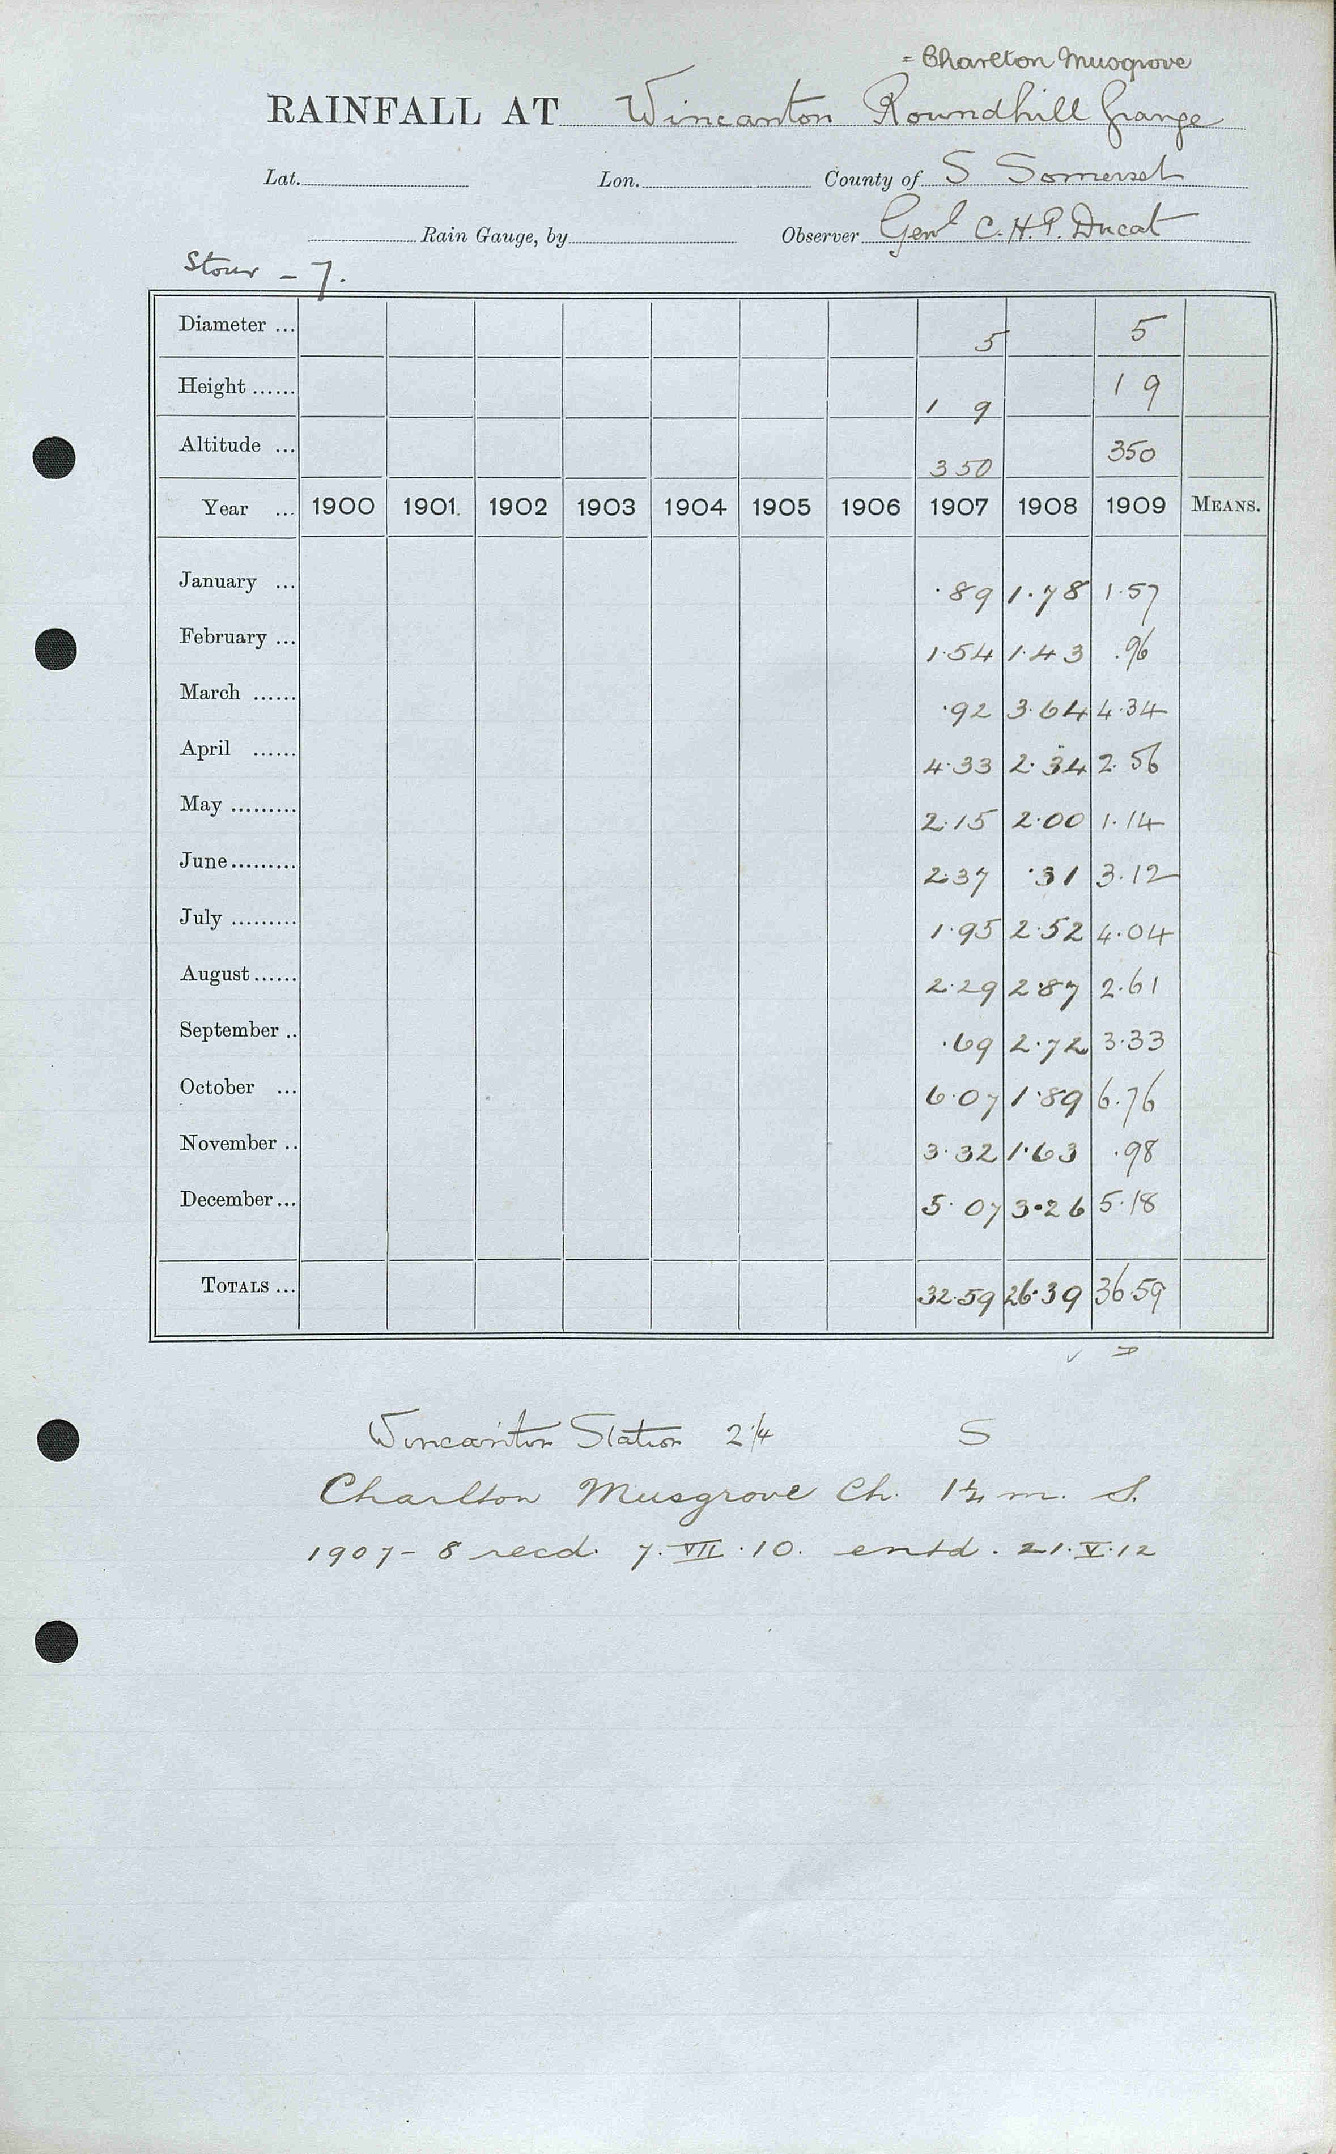 = Charlton Musgrove
RAINFALL AT Wincanton Roundhill Grange
Lat. Lon. County of S Somerset
Rain Gauge, by Observer Genl C. H. P. Ducat
Stour - 7.
Diameter ... 5 5
Height ...... 1 9 1 9
Altitude ... 350 350
Year ... 1900 1901. 1902 1903 1904 1905 1906 1907 1908 1909 MEANS.
January ... .89 1.78 1.57
February ... 1.54 1.43 .96
March ...... .92 3.64 4.34
April ...... 4.33 2.34 2.56
May ......... 2.15 2.00 1.14
June ......... 2.37 .31 3.12
July ......... 1.95 2.52 4.04
August ...... 2.29 2.87 2.61
September .. .69 2.72 3.33
October ... 6.07 1.89 6.76
November .. 3.32 1.63 .98
December ... 5.07 3.26 5.18
TOTALS ... 32.59 26.39 36.59
Wincanton Station 2 1/4 S
Charlton Musgrove Ch. 1 1/4 m. S.
1907-8 recd. 7.VII.10. entd. 21.V.12